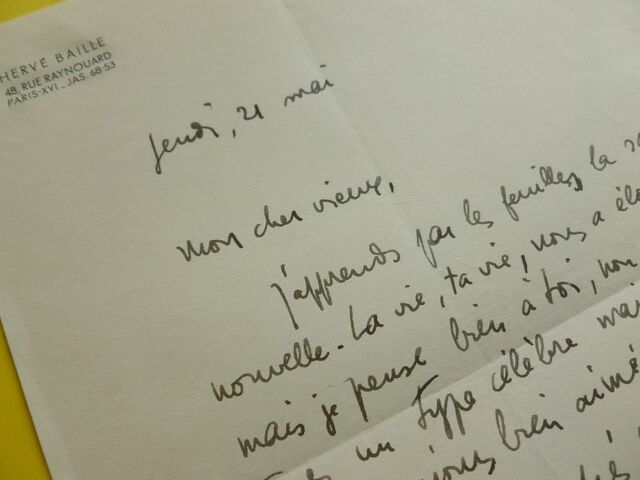 HERVÉ BAILLE
48, RUE RAYNOUARD
PARIS-XVI_JAS. 68-53
Jeudi, 21 mai
Mon cher vieux,
J'apprends par les feuilles la
nouvelle. La vie, ta vie, nous a
mais je pense bien à toi, non
un type célèbre mais
bien aimé